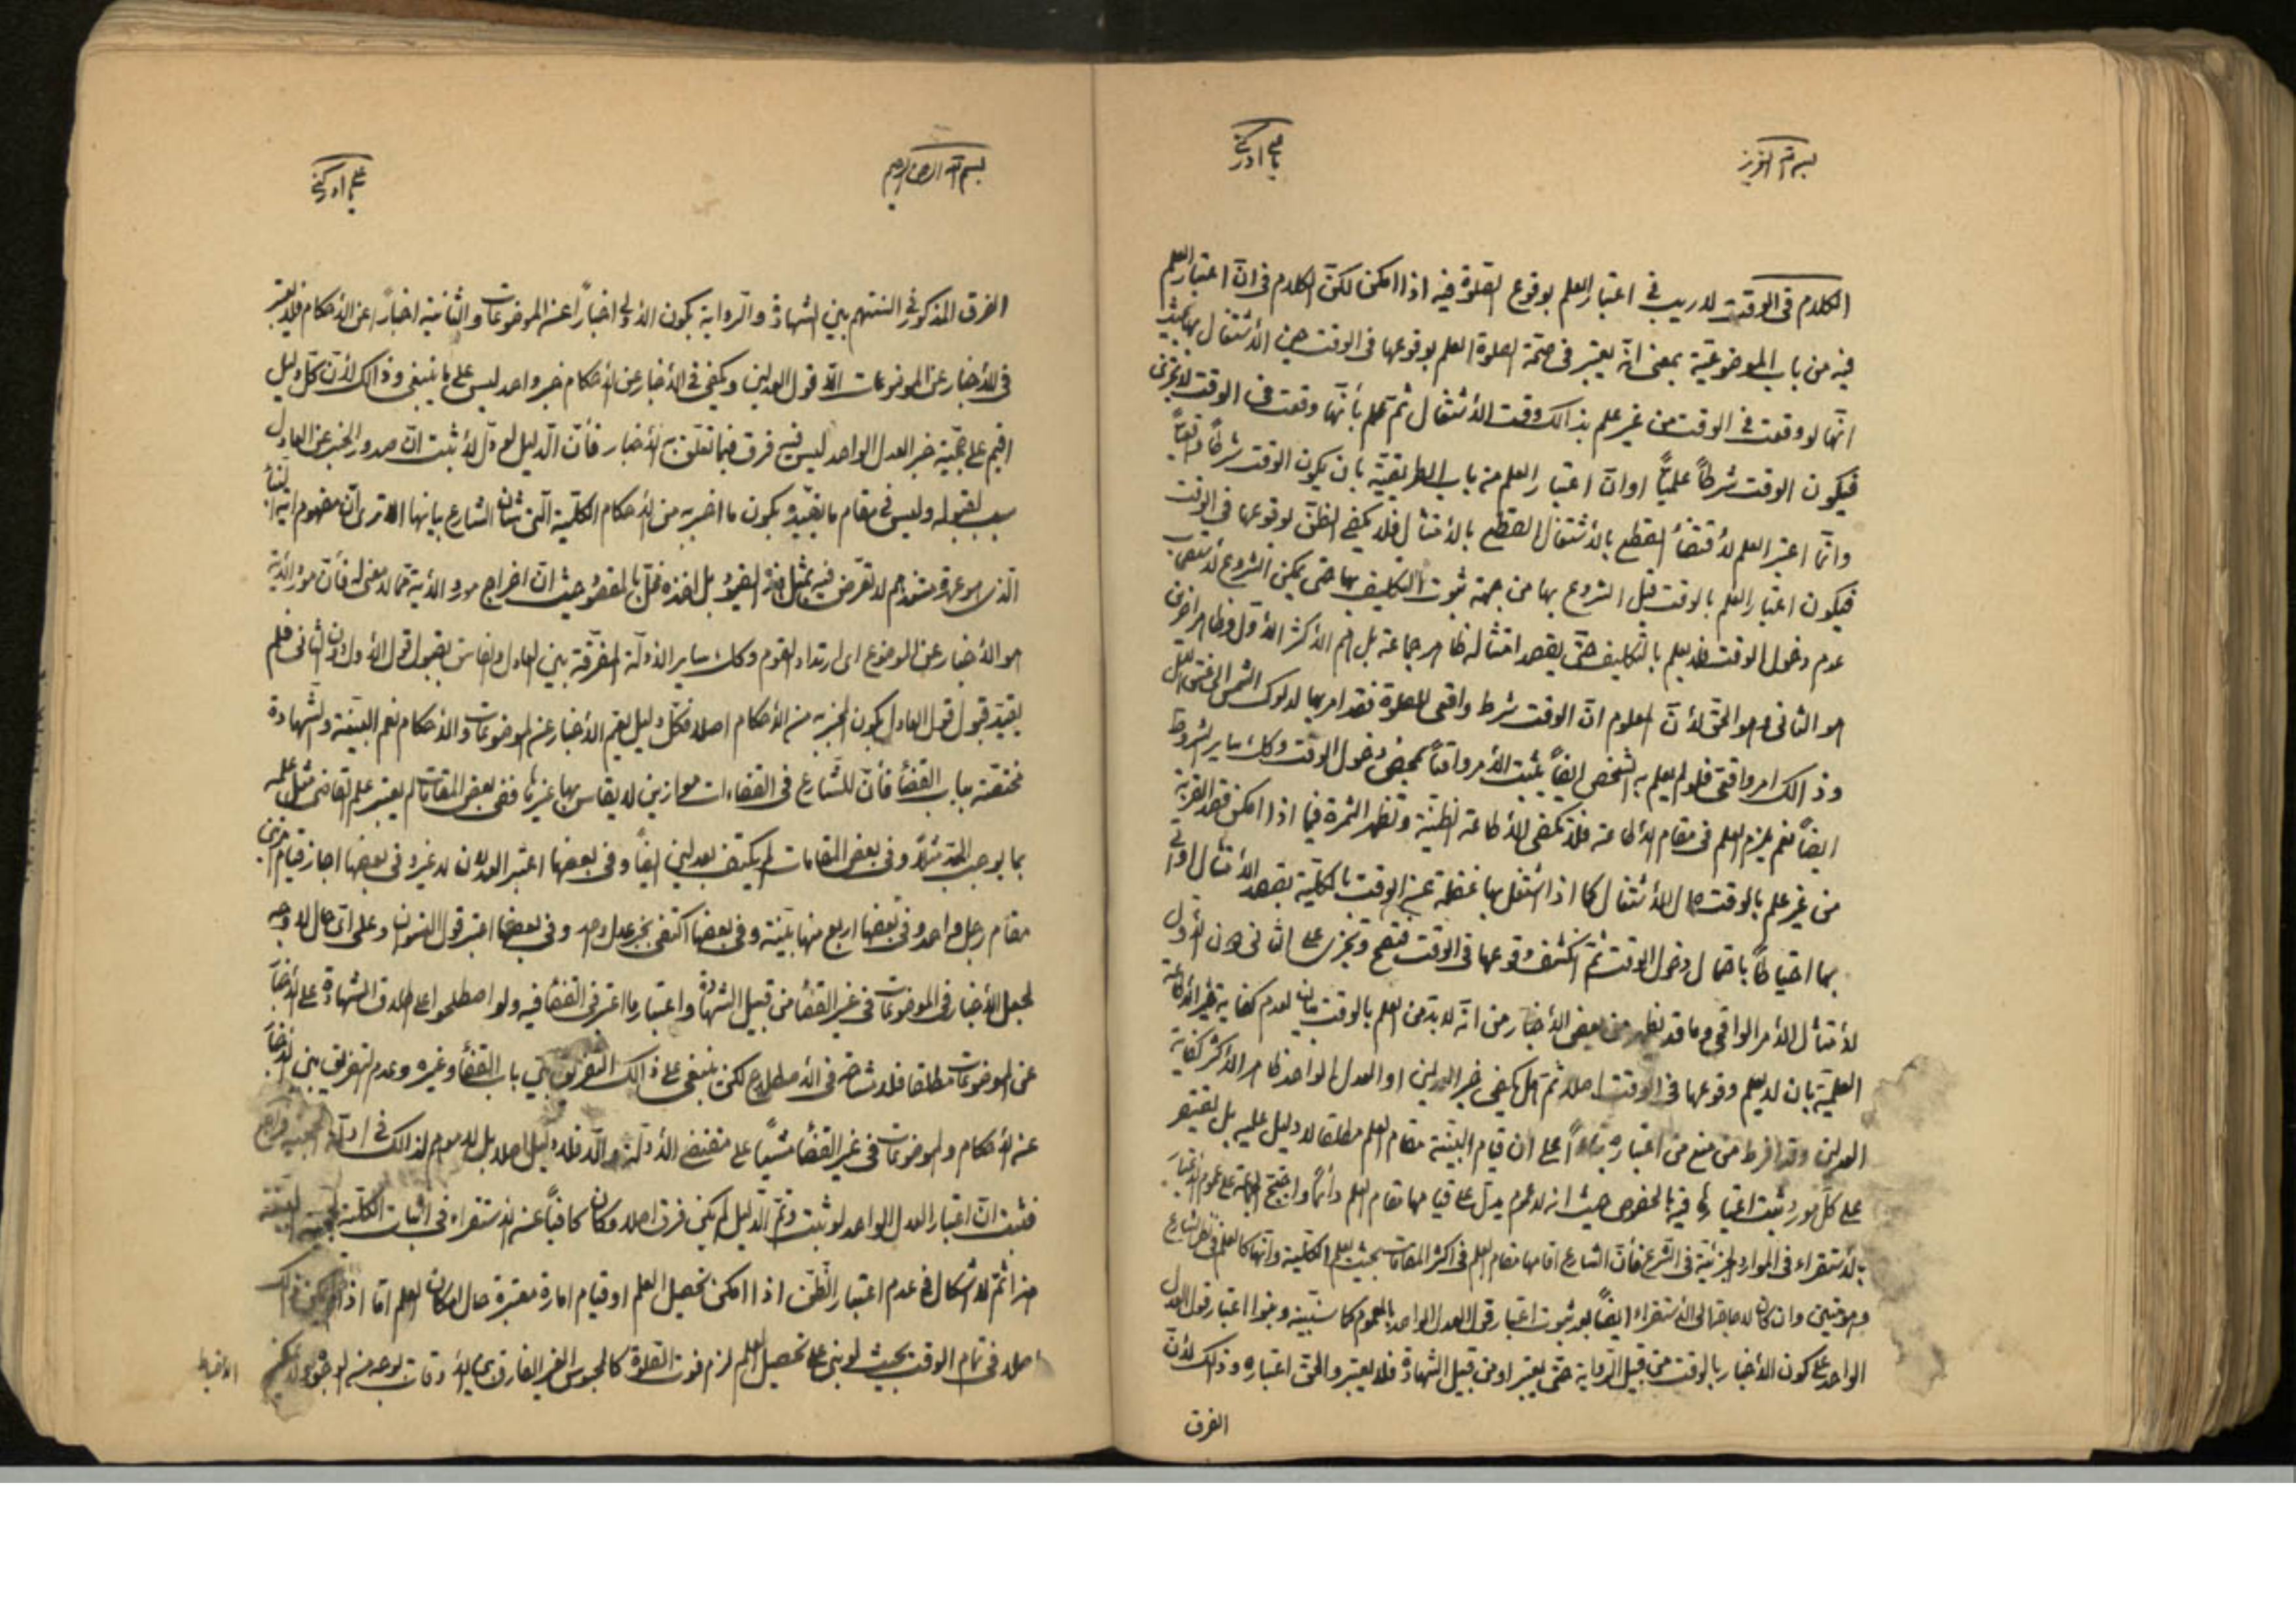 بسم الله العزيز
يا علي ادركني
الكلام في الوقت لا ريب في اعتبار العلم بوقوع الصلوة فيه اذا امكن لكن الكلام في ان اعتبار العلم
فيه من باب الموضوعية بمعنى انه يعتبر في صحة الصلوة العلم بوقوعها في الوقت حين الاشتغال بها بحيث
انها لو وقعت في الوقت من غير علم بذالك وقت الاشتغال ثم علم بأنها وقعت في الوقت لا تجزى
فيكون الوقت شرطاً علمياً او ان اعتبار العلم من باب الطريقية بان يكون الوقت شرطاً واقعياً
وانما اعتبر العلم لاقتضاء القطع بالاشتغال القطع بالامتثال فلا يكفي الظن بوقوعها في الوقت
فيكون اعتبار العلم بالوقت قبل الشروع بها من جهة ثبوت التكليف بها حتى يمكن الشروع لاستصحاب
عدم دخول الوقت فلا يعلم بالتكليف حتى يقصد امتثاله ظاهر جماعة بل هم الاكثر الاول وظاهر اخرين
هو الثاني وهو الحق لأن المعلوم ان الوقت شرط واقعي للصلوة فقد امر بها لدلوك الشمس الى غسق الليل
وذالك امر واقعي فلو لم يعلم به الشخص ايضاً يثبت الأمر واقعاً بمحض دخول الوقت وكك ساير الشروط
ايضاً نعم يلزم العلم في مقام الاطاعة فلا تكفي الاطاعة الظنية وتظهر الثمرة فيما اذا امكن قصد القربة
من غير علم بالوقت حال الاشتغال كما اذا اشتغل بها غفلة عن الوقت بالكلية بقصد الامتثال او اتى
بها احتياطاً باحتمال دخول الوقت ثم انكشف وقوعها في الوقت فتصح وتجزى على الثاني دون الاول
لامتثال الأمر الواقعي وما قد يظهر من بعض الأخبار من انه لا بد من العلم بالوقت لعدم كفاية غير الاطاعة
العلمية بان لا يعلم وقوعها في الوقت اصلا ثم هل يكفي خبر العدلين او العدل الواحد ظاهر الأكثر كفاية
العدلين وقد افرط من منع من اعتباره بناءً على ان قيام البينة مقام العلم مطلقا لا دليل عليه بل يقتصر
على كل مورد ثبت اعتبارها فيه بالخصوص حيث انه لا عموم يدل على قيامها مقام العلم دائماً واحتج الجماعة على عموم اعتبارها
بالاستقراء في الموارد الجزئية في الشرع فأن الشارع اقامها مقام العلم في اكثر المقامات بحيث يعلم الكلية وانها كالعلم في نظر الشارع
وهو متين وان كان لا حاجة الى الاستقراء ايضاً بعد ثبوت اعتبار قول العدل الواحد بالعموم كما سنبينه وبنوا اعتبار قول العدل
الواحد على كون الأخبار بالوقت من قبيل الرواية حتى يعتبر او من قبيل الشهادة فلا يعتبر والحق اعتباره وذلك لأن
الفرق
بسم الله الرحمن الرحيم
يا علي ادركني
الفرق المذكور في السنتهم بين الشهادة والرواية بكون الأولى اخباراً عن الموضوعات والثانية اخباراً عن الأحكام فلا يعتبر
في الأخبار عن الموضوعات الا قول العدلين ويكفي في الأخبار عن الأحكام خبر واحد ليس على ما ينبغي وذالك لأن كل دليل
اقيم على حجية خبر العدل الواحد ليس فيه فرق فيما تعلق به الأخبار فأن الدليل لو دل لأثبت ان صدور الخبر عن العادل
سبب لقبوله وليس في مقام ما يقيده بكون ما اخبر به من الأحكام الكلية التي شأن الشارع بيانها الا ترى ان مفهوم اية النبأ
الذي هو عمدة مستندهم لا تعرض فيه بمثل هذه القيود بل اخذه مخل بالمقصود حيث ان اخراج مورد الأية مما لا معنى له فأن مورد الأية
هو الأخبار عن الموضوع اى ارتداد القوم وكك ساير الأدلة المفرقة بين العادل والفاسق بقبول قول الأول دون الثاني فلم
يقيد قبول قول العادل بكون المخبر به من الأحكام اصلا فكل دليل يعم الأخبار عن الموضوعات والأحكام نعم البينة والشهادة
مختصة بباب القضاء فأن للشارع في القضاءات موازين لا يقاس بها غيرها ففي بعض المقامات لم يعتبر علم القاضي مثل علمه
بما يوجب الحد مثلا وفي بعض المقامات لم يكتف بعدلين ايضاً وفي بعضها اعتبر العدلان لا غير وفي بعضها اجاز قيام مرئتين
مقام رجل واحد وفي بعضها اربع منها بينة وفي بعضها اكتفى بخبر عدل واحد وفي بعضها اعتبر قول النسوان وعلى اى حال لا وجه
لجعل الأخبار في الموضوعات في غير القضاء من قبيل الشهادة واعتبار ما اعتبر في القضاء فيه ولو اصطلحوا على اطلاق الشهادة على الأخبار
عن الموضوعات مطلقا فلا مشاحة في الاصطلاح لكن ينبغي على ذالك التفريق بين باب القضاء وغيره وعدم التفريق بين الأخبار
عن الأحكام والموضوعات في غير القضاء مشياً على مقتضى الأدلة والا فلا دليل اصلا بل لا موهم لذالك في ادلة
فثبت ان اعتبار العدل الواحد لو ثبت وتم الدليل لم يكن فرق اصلا وكان كافياً عن الاستقراء في اثبات الكلية
هذا ثم لا اشكال في عدم اعتبار الظن اذا امكن تحصيل العلم او قيام امارة معتبرة حال امكان العلم اما اذا لم يمكن ذالك
اصلا في تمام الوقت بحيث لو بنى على تحصيل العلم لزم فوت الصلوة كالمحبوس الغير العارف بالأوقات بوجه من الوجوه